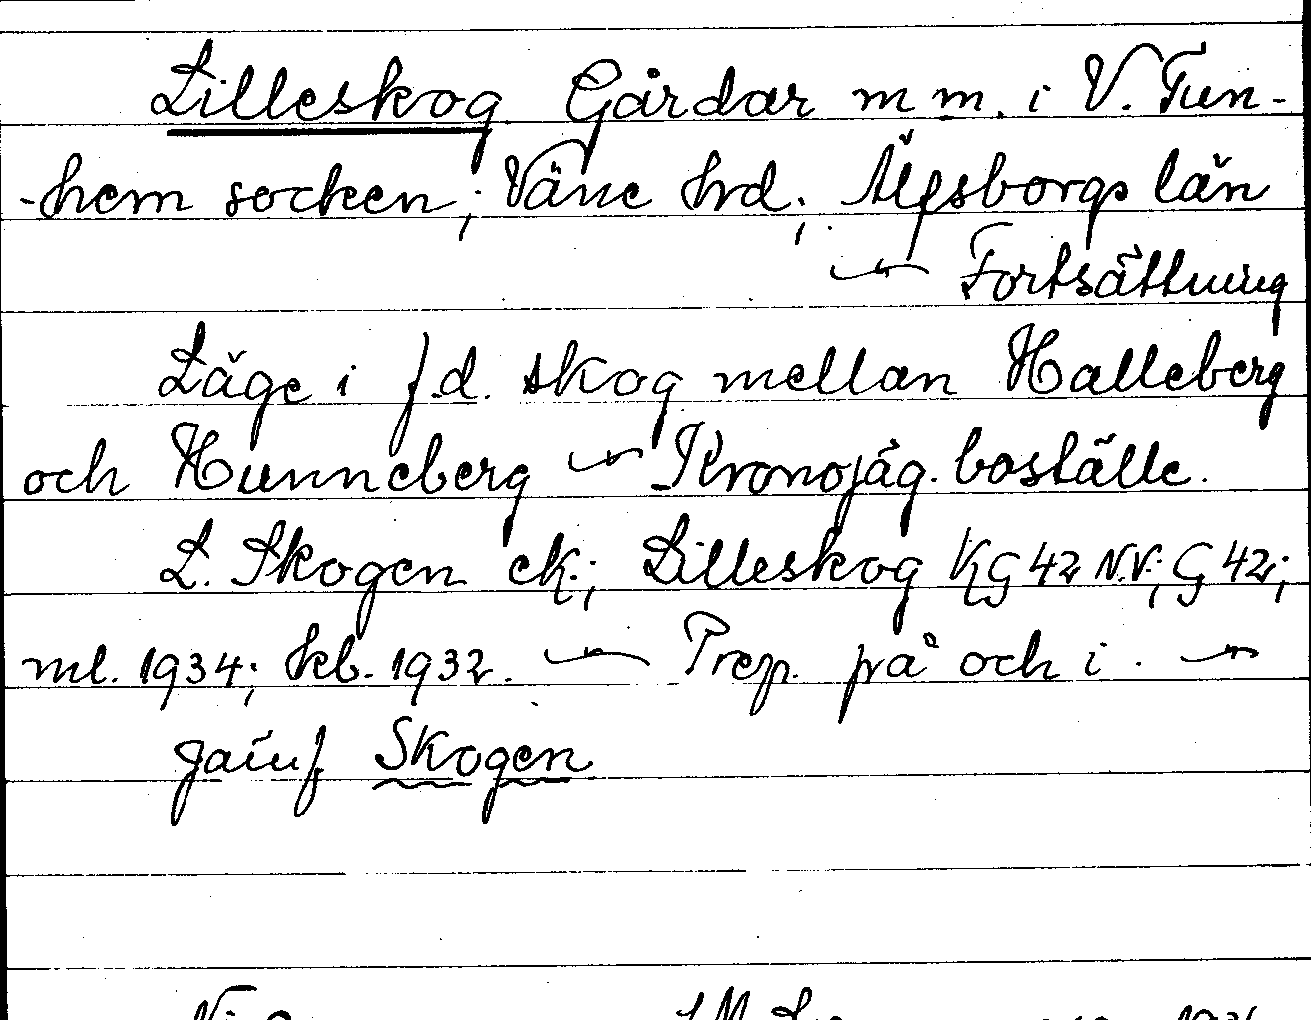 Lilleskog Gårdar m m. i V. Tun-
-hem socken; Väne hrd; Älfsborgs län
— Fortsättning
Läge i f.d. skog mellan Halleberg
och Hunneberg — Kronojäg. boställe.
L. Skogen ek.; Lilleskog KG 42 N.V.; G 42;
ml. 1934; kb. 1932. — Prep. på och i. —
jämf Skogen